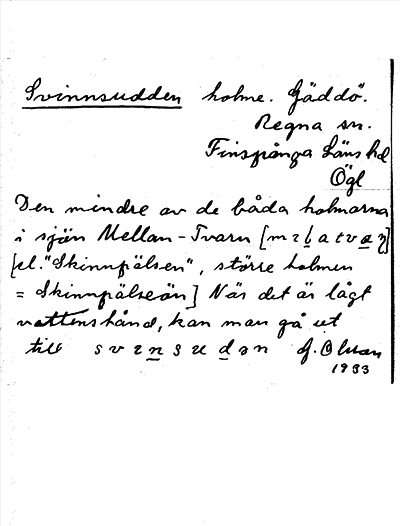 Svinnsudden holme. Gäddö.
Regna sn.
Finspånga Läns hd
Ögl
Den mindre av de båda holmarna
i sjön Mellan-Tvarn [mɛlatvaɳ]
[el. "Skinnpälsen", större holmen
= Skinnpälseön] När det är lågt
vattenstånd, kan man gå ut
till svɛnsudən G. Olsson
1933